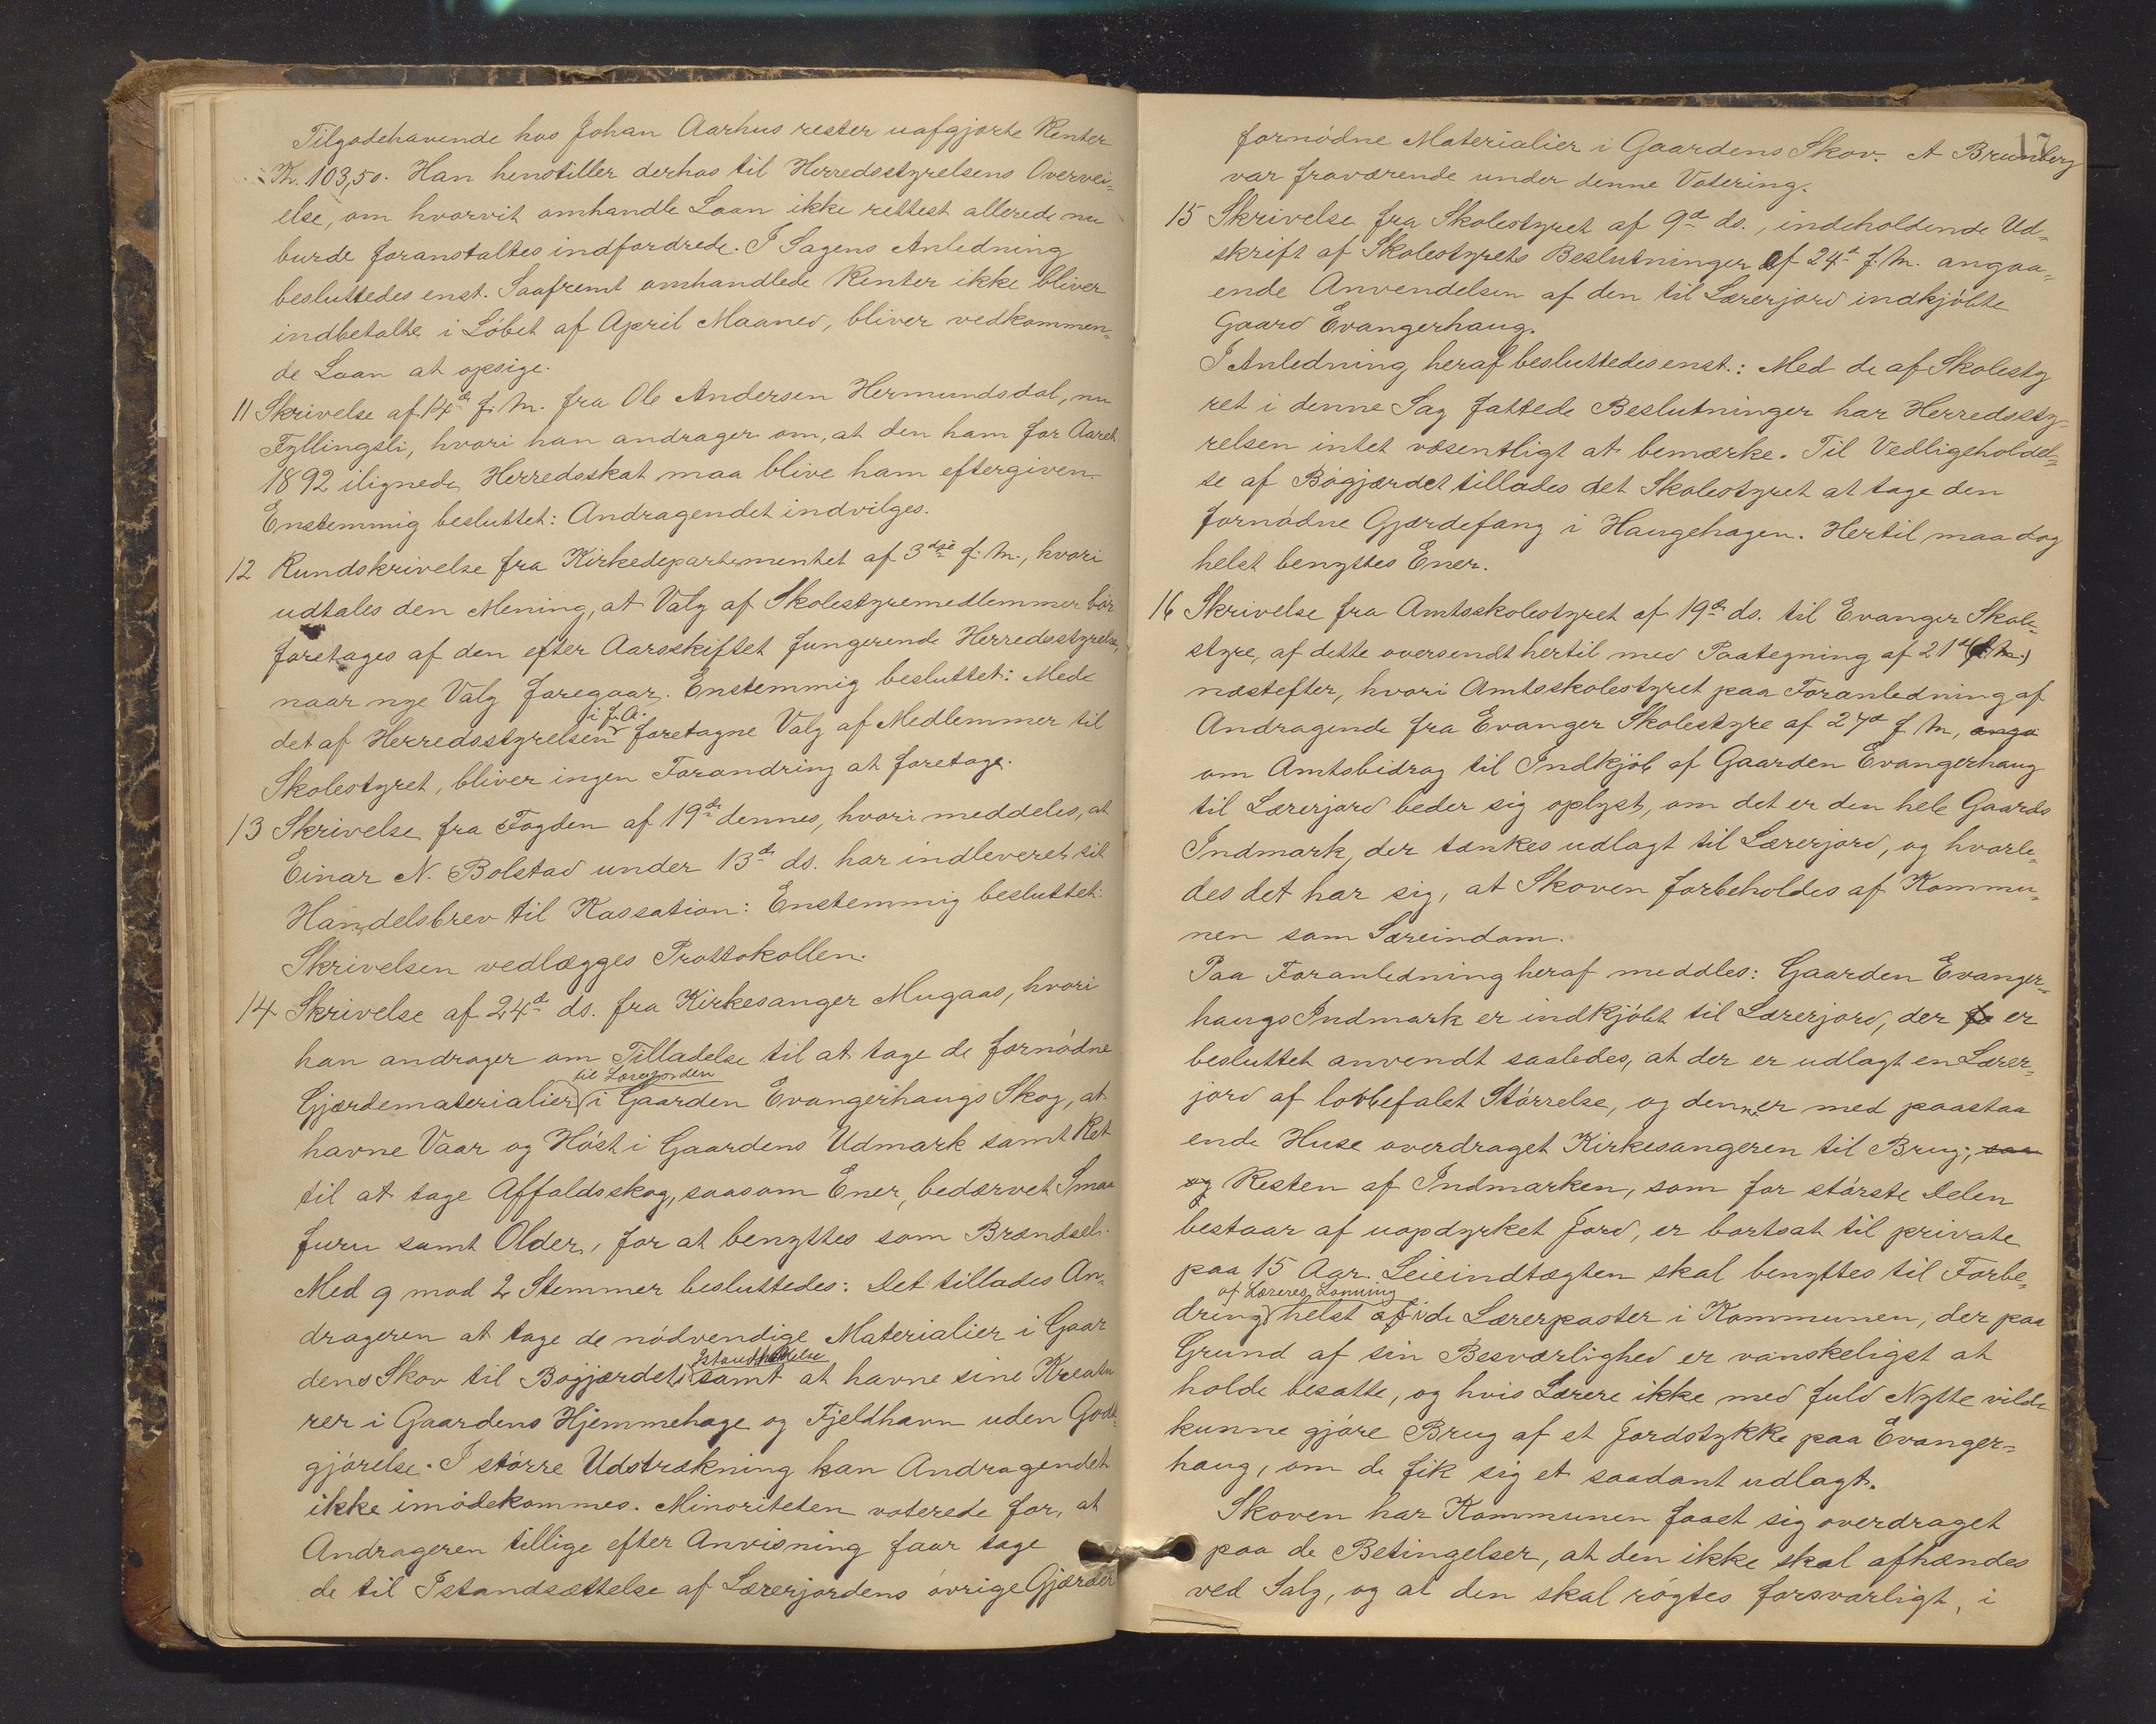 Tilgodehavende hos Johan Aarhus rester uafgjorte Renter
Kr. 103,50. Han henstiller derhos til Herredsstyrelsens Overvei-
else, om hvorvit omhandle Laan ikke rettest allerede nu
burde foranstaltes indfordrede. I Sagens Anledning
besluttedes enst. Saafremt omhandlede Renter ikke bliver
indbetalte i Løbet af April Maaned, bliver vedkommen-
de Laan at opsige.
11 Skrivelse af 14de f. M. fra Ole Andersen Hermundsdal, nu
Fyllingsli, hvori han andrager om, at den ham for Aaret
1892 ilignede Herredsskat maa blive ham eftergiven.
Enstemmig besluttet: Andragendet indvilges.
12 Rundskrivelse fra Kirkedepartementet af 3die f. M., hvori
udtales den Mening, at Valg af Skolestyremedlemmer bør
foretages af den efter Aarsskiftet fungerende Herredsstyrelse,
naar nye Valg foregaar. Enstemmig besluttet: Mede
i f. A.
det af Herredsstyrelsen foretagne Valg af Medlemmer til
Skolestyret, bliver ingen Forandring at foretage.
13 Skrivelse fra Fogden af 19de dennes, hvori meddeles, at
Einar N. Bolstad under 13de ds. har indleveret sit
Handelsbrev til Kassation: Enstemmig besluttet:
Skrivelsen vedlægges Prottokollen.
14 Skrivelse af 24de ds. fra Kirkesanger Mugaas, hvori
han andrager om Tilladelse til at tage de fornødne
til Lærerjorden
Gjærdematerialier i Gaarden Evangerhaugs Skog, at
havne Vaar og Høst i Gaardens Udmark samt Ret
til at tage Affaldsskog, saasom Ener, bedærvet Smaa
furu samt Older, for at benyttes som Brændsel.
Med 9 mod 2 Stemmer besluttedes: Det tillades An-
drageren at tage de nødvendige Materialier i Gaar
Istandsættelse
dens Skov til Bøgjærdets samt at havne sine Kreatu
rer i Gaardens Hjemmehage og Fjeldhavn uden Godt-
gjørelse. I større Udstrækning kan Andragendet
ikke imødekommes. Minoriteten voterede for, at
Andrageren tillige efter Anvisning faar tage
de til Istandsættelse af Lærerjordens øvrige Gjærder
17
fornødne Materialier i Gaardens Skov. A Brunberg
var fraværende under denne Votering.
15 Skrivelse fra Skolestyret af 9de ds., indeholdende Ud-
skrift af Skolestyrets Beslutninger af 24de f. M. angaa-
ende Anvendelsen af den til Lærerjord indkjøbte
Gaard Evangerhaug.
I Anledning heraf besluttedes enst.: Med de af Skolesty
ret i denne Sag fattede Beslutninger har Herredssty-
relsen intet væsentligt at bemærke. Til Vedligeholdel-
se af Bøgjærdet tillades det Skolestyret at tage den
fornødne Gjærdefang i Haugehagen. Hertil maa dog
helst benyttes Ener.
16 Skrivelse fra Amtsskolestyret af 19de ds. til Evanger Skole-
styre, af dette oversendt hertil med Paategning af 21de
næstefter, hvori Amtsskolestyret paa Foranledning af
Andragende fra Evanger Skolestyre af 27de f M, anga
om Amtsbidrag til Indkjøb af Gaarden Evangerhaug
til Lærerjord beder sig oplyst, om det er den hele Gaards
Indmark, der tænkes udlagt til Lærerjord, og hvorle-
des det har sig, at Skoven forbeholdes af Kommu-
nen som Særeindom.
Paa Foranledning heraf meddles: Gaarden Evanger-
haugs Indmark er indkjøbt til Lærerjord, der er
besluttet anvendt saaledes, at der er udlagt en Lærer-
jord af lovbefalet Størrelse, og denne er med paastaa
ende Huse overdraget Kirkesangeren til Brug; saa
og Resten af Indmarken, som for største Delen
bestaar af uopdyrket Jord, er bortsat til private
paa 15 Aar. Leieindtægten skal benyttes til Forbe-
af Læreres Lønning
dring helst af i de Lærerposter i Kommunen, der paa
Grund af sin Besværlighed er vanskeligst at
holde besatte, og hvis Lærere ikke med fuld Nytte vilde
kunne gjøre Brug af et Jordstykke paa Evanger-
haug, om de fik sig et saadant udlagt.
Skoven har Kommunen faaet sig overdraget
paa de Betingelser, at den ikke skal afhændes
ved Salg, og at den skal røgtes forsvarligt, i